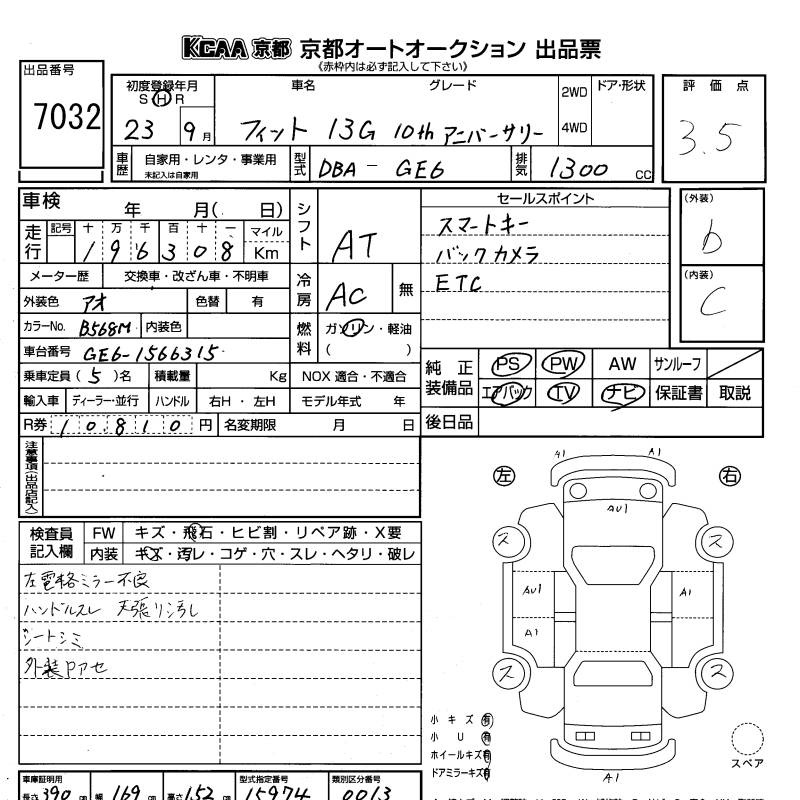 KCAA 京都 京都オートオークション 出品票
《赤枠内は必ず記入して下さい》
出品番号
7032
初度登録年月
S H R
23 9月
車名 グレード
フィット 13G 10th アニバーサリー
2WD
4WD
ドア・形状
評価点
3.5
車歴
自家用・レンタ・事業用
未記入は自家用
型式
DBA - GE6
排気
1300 CC
車検 年 月( 日)
走行
記号 十 万 千 百 十 一 マイル
1 9 6 3 0 8 Km
メーター歴 交換車・改ざん車・不明車
外装色 アオ 色替 有
カラーNo. B568M 内装色
車台番号 GE6-1566315
乗車定員 (5)名 積載量 Kg
輸入車 ディーラー・並行 ハンドル 右H・左H
R券 10,810 円 名変期限 月 日
シフト AT
冷房 AC 無
燃料 ガソリン・軽油
( )
NOX 適合・不適合
モデル年式 年
セールスポイント
スマートキー
バックカメラ
ETC
(外装)
b
(内装)
C
純正装備品
PS PW AW サンルーフ
エアバック TV ナビ 保証書 取説
後日品
注意事項(出品店記入)
検査員記入欄
FW キズ・飛石・ヒビ割・リペア跡・X要
内装 キズ・汚レ・コゲ・穴・スレ・ヘタリ・破レ
左電格ミラー不良
ハンドルスレ 天張リ汚れ
シートシミ
外装Pアセ
左 右
A1 A1
AU1
ス ス
AU1 A1
A1
ス ス
A1
小キズ 有
小U 有
ホイールキズ 有
ドアミラーキズ 有
スペア
車庫証明用
長さ 390 cm 幅 169 cm 高さ 152 cm
型式指定番号
15974
類別区分番号
0013